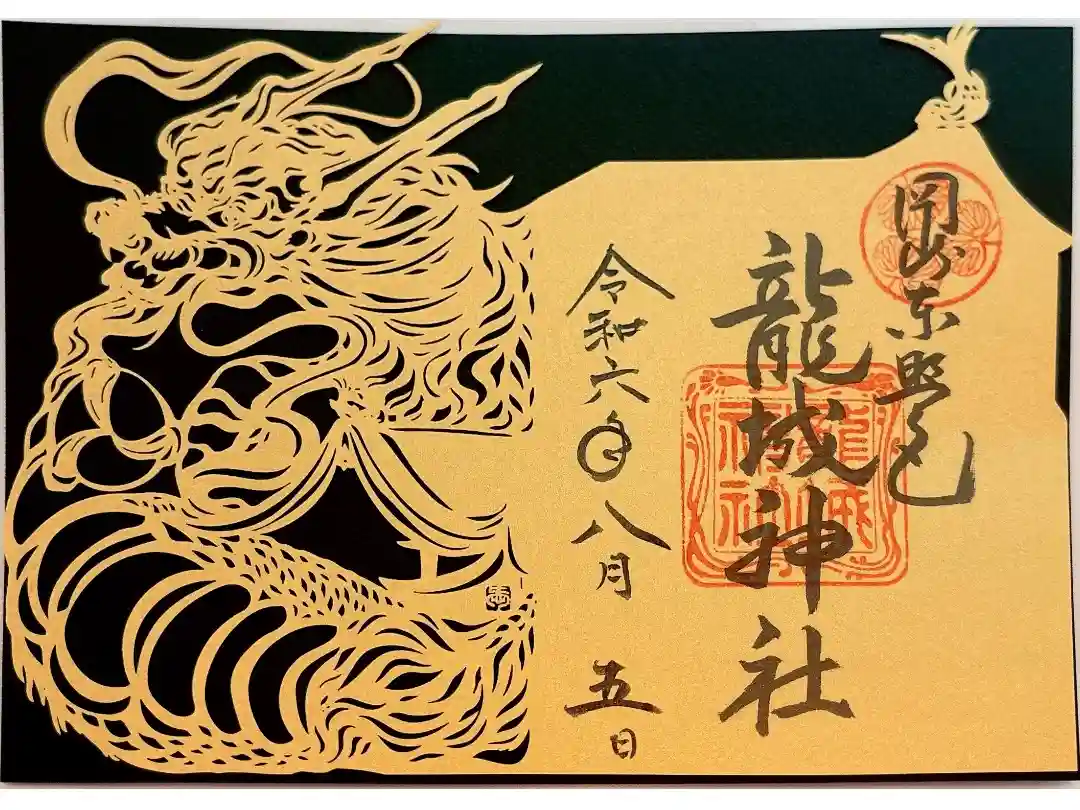 岡崎東照宮
龍城神社
令和六年八月五日
龍城神社